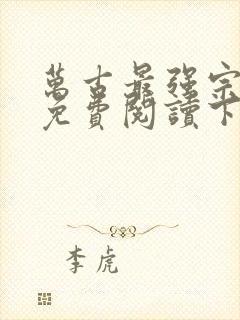 萬古最強宗
免費閱讀下
李虎